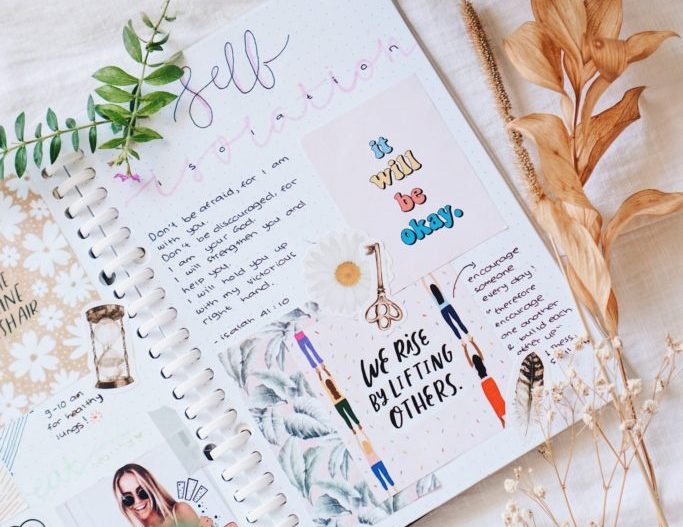 self
isolation
isolation
Don't be afraid, for I am
with you.
Don't be discouraged, for
I am your God.
I will strengthen you and
help you.
I will hold you up
with my victorious
right hand.
- Isaiah 41:10
it
will
be
okay.
encourage
someone
every day!
"therefore
encourage
one another
& build each
other up"
WE RISE
BY LIFTING
OTHERS.
HAIR
9-10 am
for healthy
lungs!